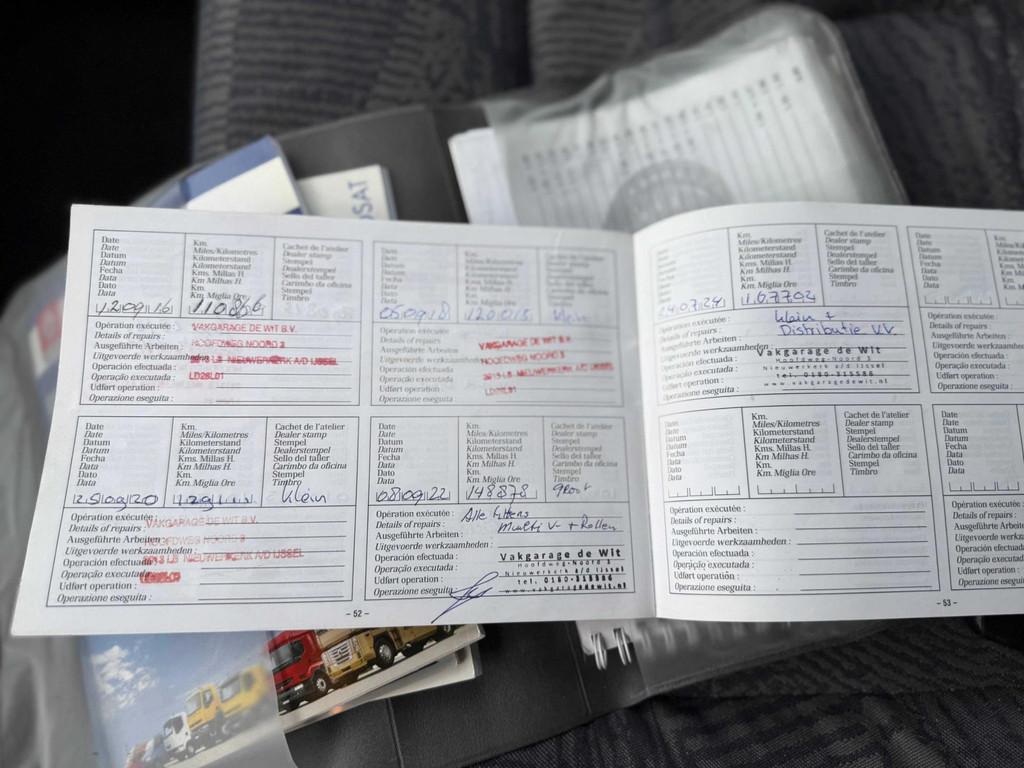 OSAT
Date
Date
Datum
Datum
Fecha
Data
Dato
Data
12 09 16
Km.
Miles/Kilometres
Kilometerstand
Kilometerstand
Kms. Millas H.
Km Milhas H.
Km.
Km. Miglia Ore
110886
Cachet de l'atelier
Dealer stamp
Stempel
Dealerstempel
Sello del taller
Carimbo da oficina
Stempel
Timbro
Opération exécutée :
Details of repairs :
Ausgeführte Arbeiten :
Uitgevoerde werkzaamheden
Operación efectuada :
Operação executada :
Udført operation :
Operazione eseguita :
VAKGARAGE DE WIT B.V.
HOOFDWEG NOORD 3
2913 LB NIEUWERKERK A/D IJSSEL
Date
Date
Datum
Datum
Fecha
Data
Dato
Data
05 09 18
Km.
Miles/Kilometres
Kilometerstand
Kilometerstand
Kms. Millas H.
Km Milhas H.
Km.
Km. Miglia Ore
Cachet de l'atelier
Dealer stamp
Stempel
Dealerstempel
Sello del taller
Carimbo da oficina
Stempel
Timbro
Klein
Opération exécutée :
Details of repairs :
Ausgeführte Arbeiten :
Uitgevoerde werkzaamheden
Operación efectuada :
Operação executada :
Udført operation :
Operazione eseguita :
VAKGARAGE DE WIT B.V.
HOOFDWEG NOORD 3
2913 LB NIEUWERKERK A/D IJSSEL
Date
Date
Datum
Datum
Fecha
Data
Dato
Data
25 09 20
Km.
Miles/Kilometres
Kilometerstand
Kilometerstand
Kms. Millas H.
Km Milhas H.
Km.
Km. Miglia Ore
Cachet de l'atelier
Dealer stamp
Stempel
Dealerstempel
Sello del taller
Carimbo da oficina
Stempel
Timbro
Klein
Opération exécutée :
Details of repairs :
Ausgeführte Arbeiten
Uitgevoerde werkzaamheden :
Operación efectuada :
Operação executada
Udført operation :
Operazione eseguita :
VAKGARAGE DE WIT B.V.
HOOFDWEG NOORD 3
2913 LB NIEUWERKERK A/D IJSSEL
Date
Date
Datum
Datum
Fecha
Data
Dato
Data
08 09 22
Km.
Miles/Kilometres
Kilometerstand
Kilometerstand
Kms. Millas H.
Km Milhas H.
Km.
Km. Miglia Ore
148878
Cachet de l'atelier
Dealer stamp
Stempel
Dealerstempel
Sello del taller
Carimbo da oficina
Stempel
Timbro
groot
Opération exécutée :
Details of repairs :
Ausgeführte Arbeiten :
Uitgevoerde werkzaamheden :
Operación efectuada :
Operação executada :
Udført operation :
Operazione eseguita
Alle filters
Multi V- + Rollen
Vakgarage de Wit
Hoofdweg-Noord 3
Nieuwerkerk a/d IJssel
tel. 0180-315586
www.vakgaragedewit.nl
- 52 -
24 07 24
Km.
Miles/Kilometres
Kilometerstand
Kilometerstand
Kms. Millas H.
Km Milhas H.
Km.
Km. Miglia Ore
167702
Cachet de l'atelier
Dealer stamp
Stempel
Dealerstempel
Sello del taller
Carimbo da oficina
Stempel
Timbro
Opération exécutée :
Details of repairs :
Ausgeführte Arbeiten :
Uitgevoerde werkzaamheden :
Operación efectuada :
Operação executada :
Udført operation :
Operazione eseguita :
Klein +
Distributie V.V.
Vakgarage de Wit
Hoofdweg-Noord 3
Nieuwerkerk a/d IJssel
tel. 0180-315586
www.vakgaragedewit.nl
Date
Date
Datum
Datum
Fecha
Data
Dato
Data
Km.
Opération e
Details of re
Ausgeführte
Uitgevoerde
Operación e
Operação ex
Udført opera
Operazione e
Date
Date
Datum
Datum
Fecha
Data
Dato
Data
Km.
Miles/Kilometres
Kilometerstand
Kilometerstand
Kms. Millas H.
Km Milhas H.
Km.
Km. Miglia Ore
Cachet de l'atelier
Dealer stamp
Stempel
Dealerstempel
Sello del taller
Carimbo da oficina
Stempel
Timbro
Opération exécutée :
Details of repairs :
Ausgeführte Arbeiten :
Uitgevoerde werkzaamheden :
Operación efectuada :
Operação executada :
Udført operation :
Operazione eseguita :
Date
Date
Datum
Datum
Fecha
Data
Dato
Data
- 53 -